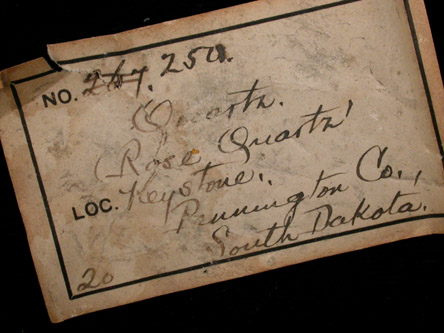 NO. 267. 250.
Quartz.
(Rose Quartz)
LOC. Keystone.
Pennington Co.,
South Dakota.
20